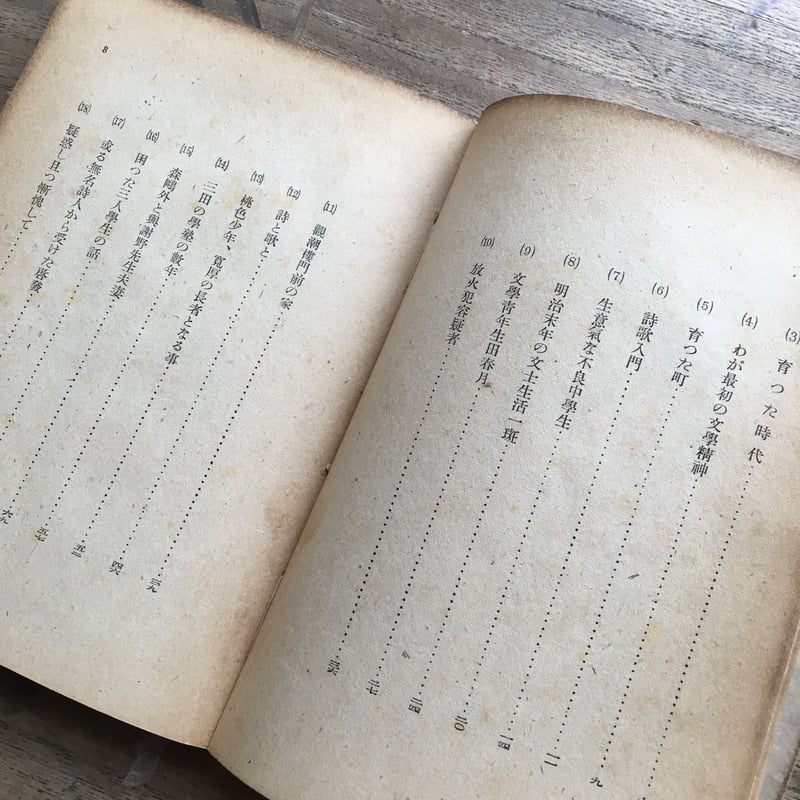 (3) 育つた時代
(4) わが最初の文學精神……九
(5) 育つた町……一一
(6) 詩歌入門……一四
(7) 生意氣な不良中學生……二〇
(8) 明治末年の文士生活一斑……二四
(9) 文學靑年生田春月……二七
(10) 放火犯容疑者……三六
8
(11) 觀潮樓門前の家……三九
(12) 詩と歌と……四六
(13) 桃色少年、寬厚の長者となる事……
(14) 三田の學塾の數年……五七
(15) 森鷗外と與謝野先生夫妻……六九
(16) 困つた三人學生の話……
(17) 或る無名詩人から受けた啓發……
(18) 疑惑し且つ慚愧して……